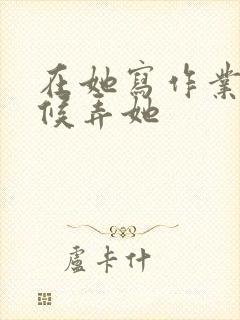 在她寫作業
候弄她
盧卡什